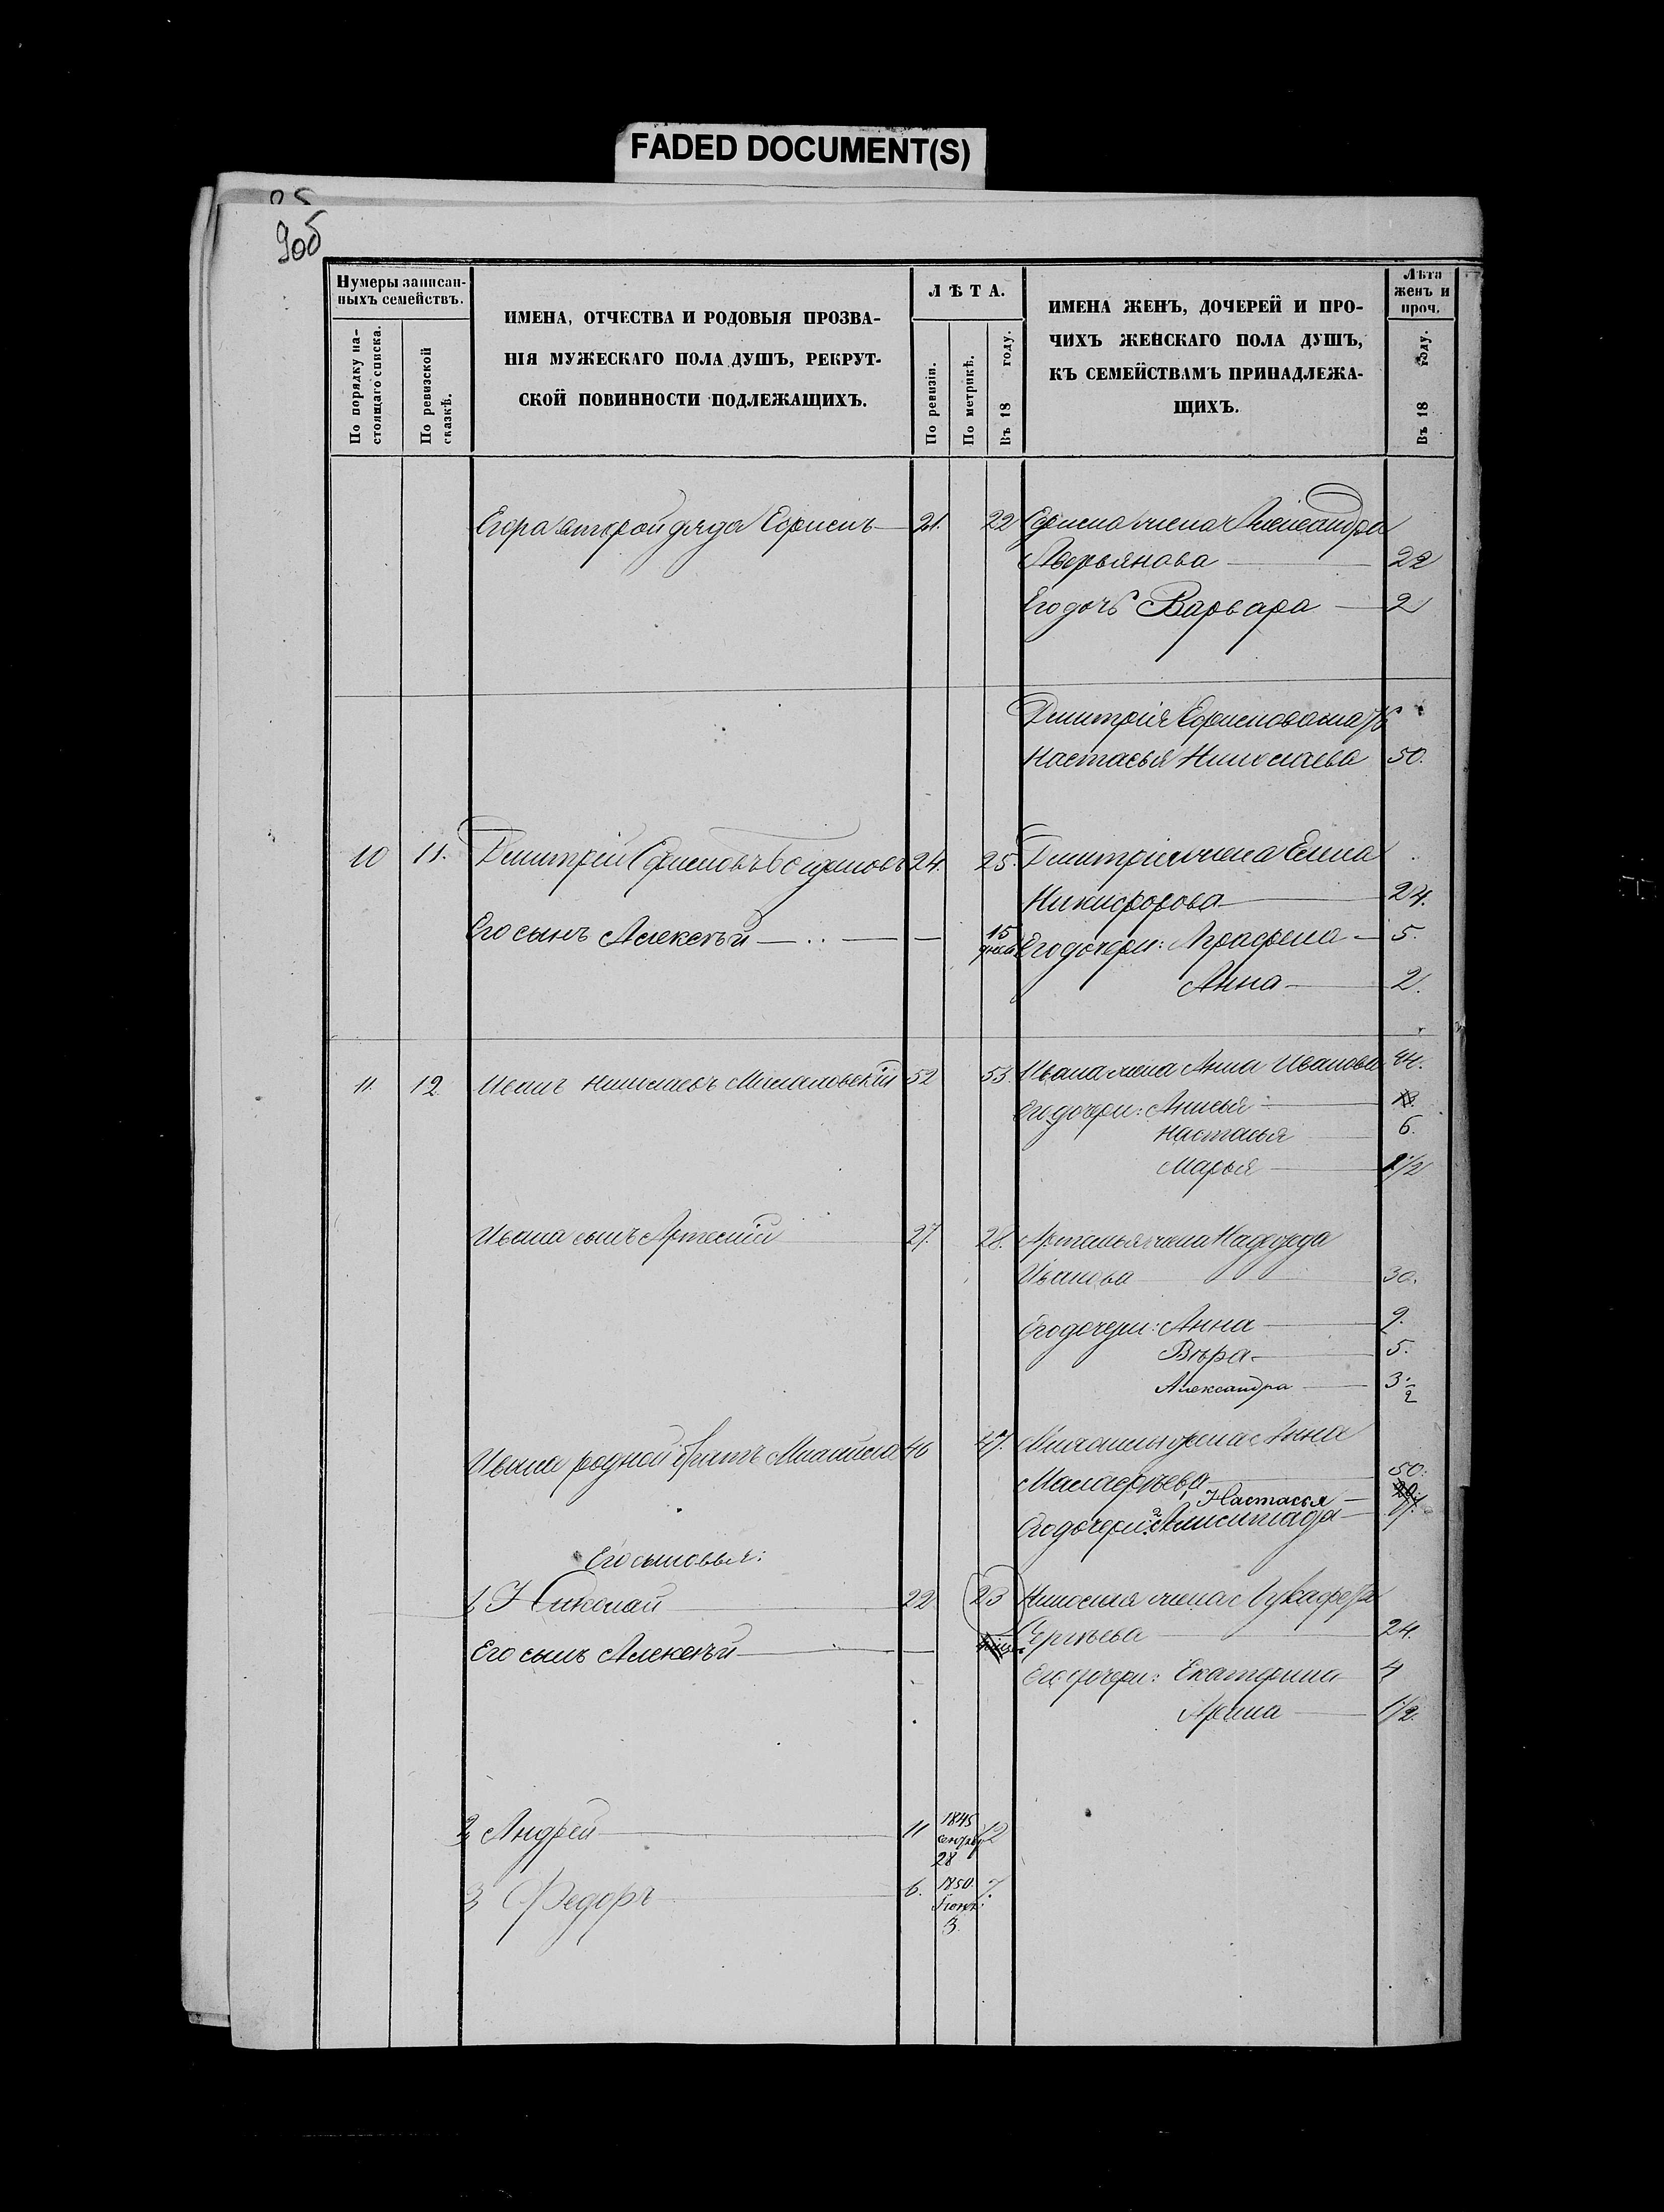 FADED DOCUMENT(S)
9об
Нумеры записан-
ныхъ семействъ.
По порядку на-
стоящаго списка.
По ревизской
сказкѣ.
ИМЕНА, ОТЧЕСТВА И РОДОВЫЯ ПРОЗВА-
НІЯ МУЖЕСКАГО ПОЛА ДУШЪ, РЕКРУТ-
СКОЙ ПОВИННОСТИ ПОДЛЕЖАЩИХЪ.
ЛѢТА.
По ревизіи.
По метрикѣ.
Въ 18 году.
ИМЕНА ЖЕНЪ, ДОЧЕРЕЙ И ПРО-
ЧИХЪ ЖЕНСКАГО ПОЛА ДУШЪ,
КЪ СЕМЕЙСТВАМЪ ПРИНАДЛЕЖА-
ЩИХЪ.
Лѣта
женъ и
проч.
Въ 18 году.
Егора второй дядя Ефимъ 21. 22 Ефима жена Александра
Аверьянова 22
Его дочь Варвара 2
Дмитрія Ефимова мать
Настасья Николаева 50.
10 11. Дмитрій Ефимовъ 24. 25. Дмитрія жена Елена
Никифорова 24.
Его сынъ Алексѣй — 15 дней Его дочери: Аграфена 5.
Анна 2.
11. 12 Иванъ Николаевъ 52 53. Ивана жена Анна Иванова 44.
Его дочери: Анисья
Настасья 6.
Марья 1/2
Ивана сынъ Артемій 27. 28. Артемья жена Надежда
Иванова 30.
Его дочери: Анна 9.
Вѣра 5.
Александра 3 1/2
Ивана родной братъ Михайла 46 47. Михайлы жена Анна
50.
Настасья
Его дочери:
Его сыновья:
1, Николай 22 23 Николая жена
Сергѣева 24.
Его сынъ Алексѣй —
Его дочери: Екатерина 4
Арина 1/2.
2, Андрей 11 1845 сентябр 28 12
3 Федоръ 6. 1850 Іюня 3. 7.